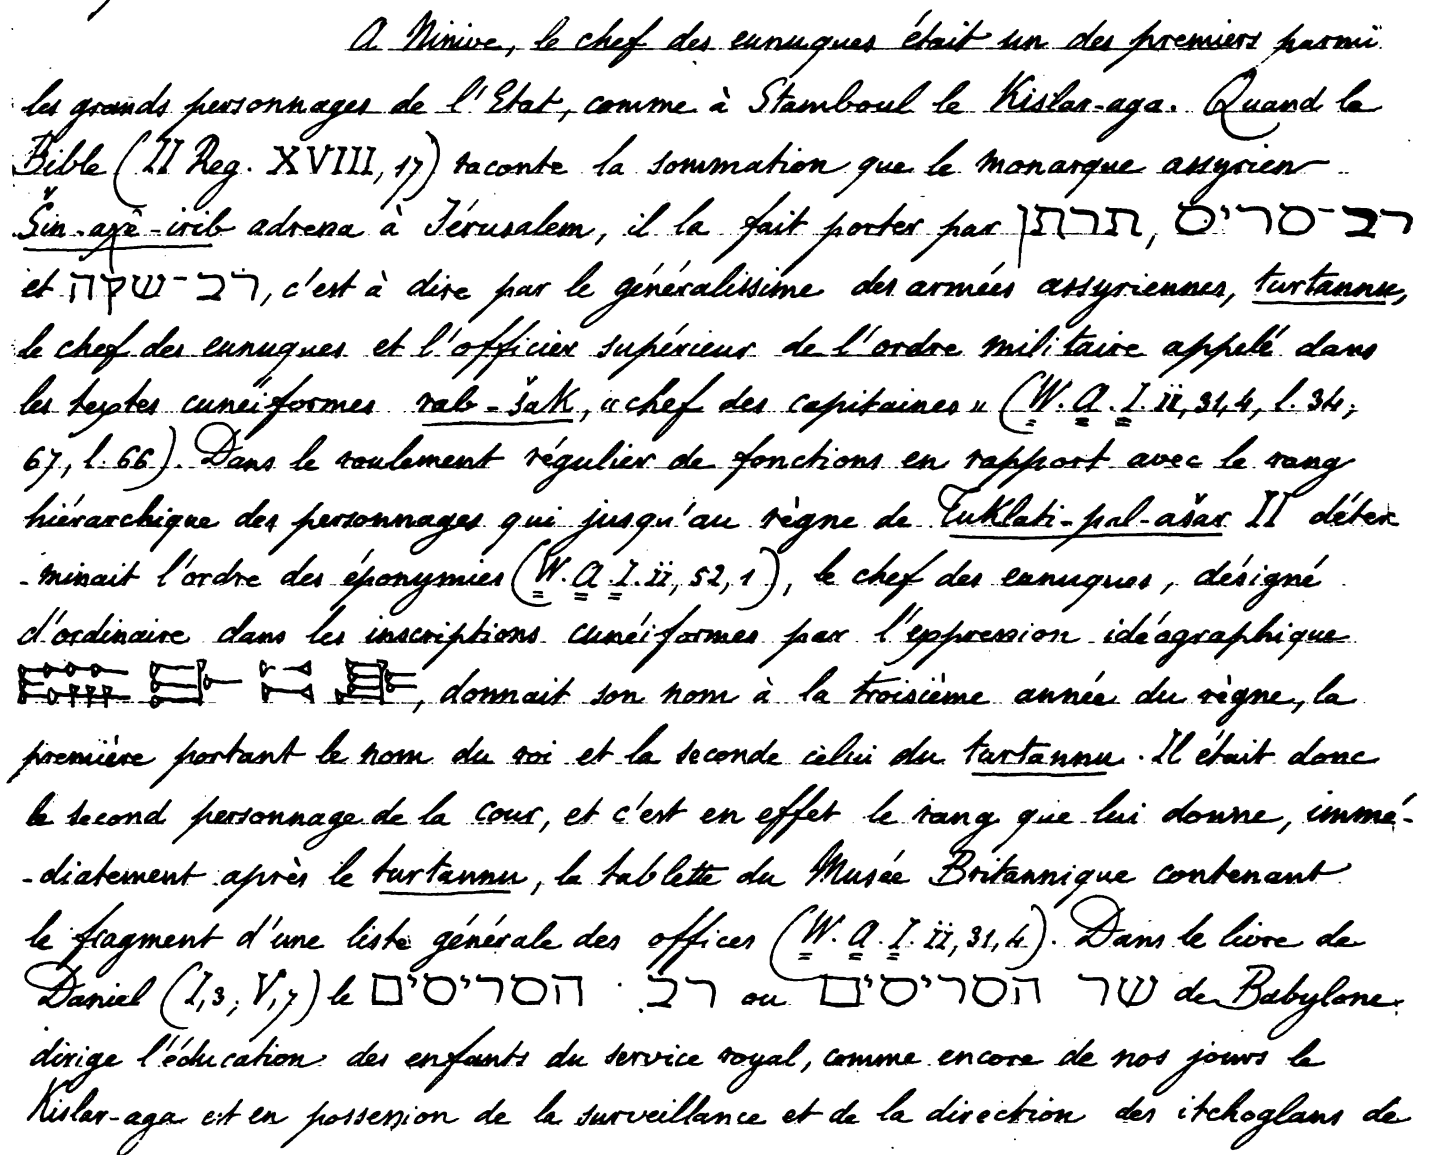 A Ninive, le chef des eunuques était un des premiers parmi
les grands personnages de l'Etat, comme à Stamboul le Kislar-aga. Quand la
Bible (II Reg. XVIII, 17) raconte la sommation que le monarque assyrien
Šin-aχê-irib adressa à Jérusalem, il la fait porter par תרתן, רב־סריס
et רב־שקה, c'est à dire par le généralissime des armées assyriennes, turtannu,
le chef des eunuques et l'officier supérieur de l'ordre militaire appelé dans
les textes cunéiformes rab-šak, «chef des capitaines» (W.A.I. ii, 31, 4, l. 34;
67, l. 66). Dans le roulement régulier de fonctions en rapport avec le rang
hiérarchique des personnages qui jusqu'au règne de Tuklati-pal-ašar II déter
-minait l'ordre des éponymies (W.A.I. ii, 52, 1), le chef des eunuques, désigné
d'ordinaire dans les inscriptions cunéiformes par l'expression idéographique
, donnait son nom à la troisième année du règne, la
première portant le nom du roi et la seconde celui du turtannu. Il était donc
le second personnage de la cour, et c'est en effet le rang que lui donne, immé-
-diatement après le turtannu, la tablette du Musée Britannique contenant
le fragment d'une liste générale des offices (W.A.I. ii, 31, 4). Dans le livre de
Daniel (I, 3; V, 7) le רב הסריסים ou שר הסריסים de Babylone
dirige l'éducation des enfants du service royal, comme encore de nos jours le
Kislar-aga est en possession de la surveillance et de la direction des itchoglans de